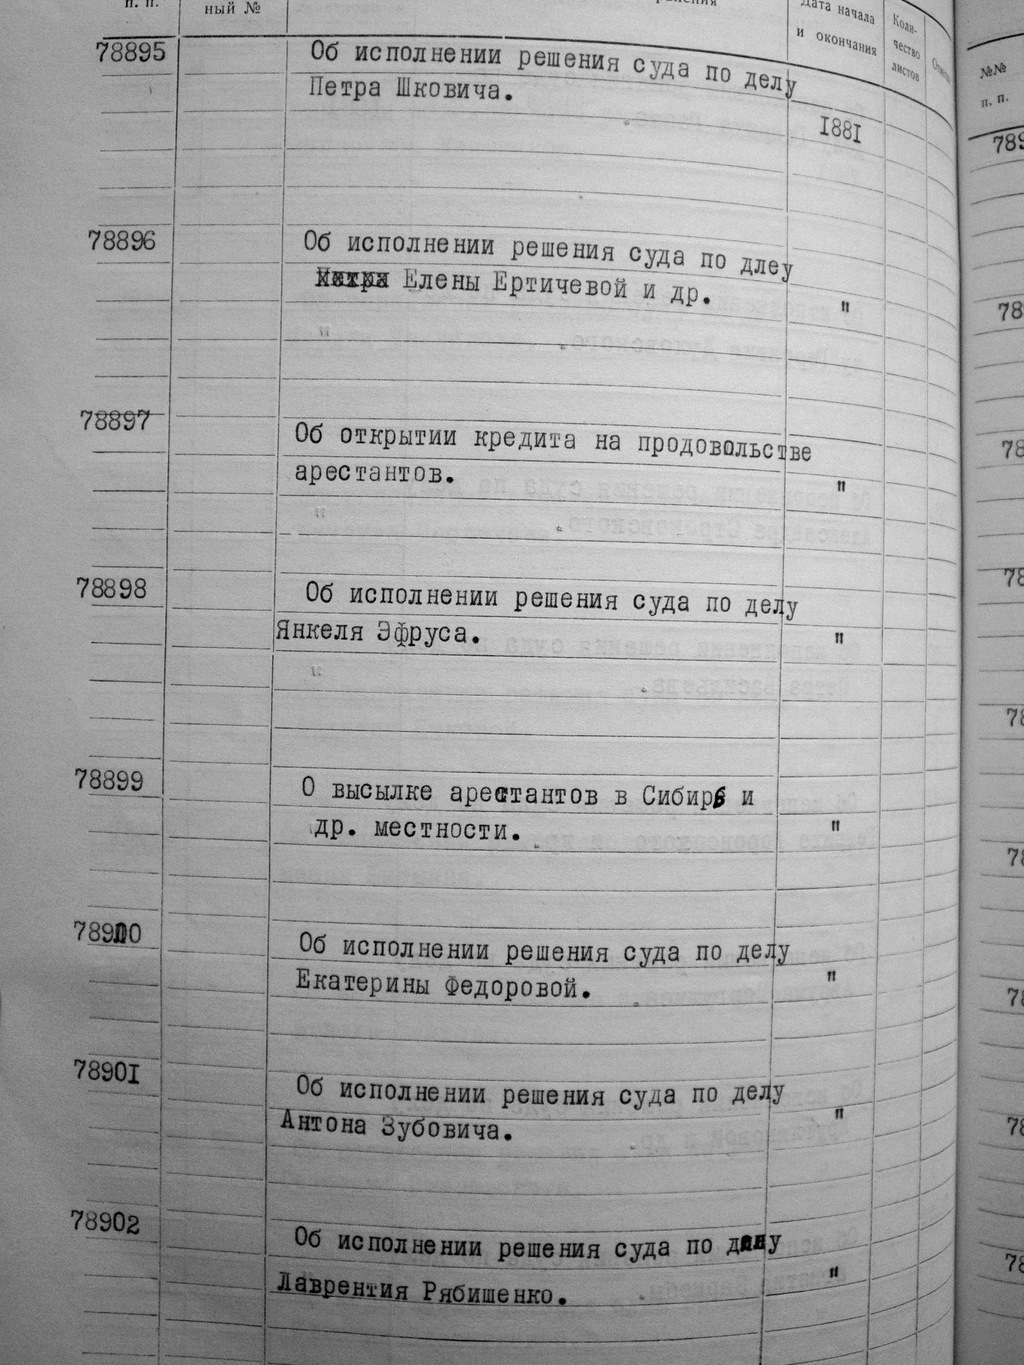 п. п.
ный №
Дата начала
и окончания
Коли-
чество
листов
№№
п. п.
78895
Об исполнении решения суда по делу
Петра Шковича.
1881
78896
Об исполнении решения суда по длеу
Елены Ертичевой и др.
"
78897
Об открытии кредита на продовольстве
арестантов.
"
78898
Об исполнении решения суда по делу
Янкеля Эфруса.
"
78899
О высылке арестантов в Сибирь и
др. местности.
"
78900
Об исполнении решения суда по делу
Екатерины Федоровой.
"
78901
Об исполнении решения суда по делу
Антона Зубовича.
"
78902
Об исполнении решения суда по делу
Лаврентия Рябишенко.
"